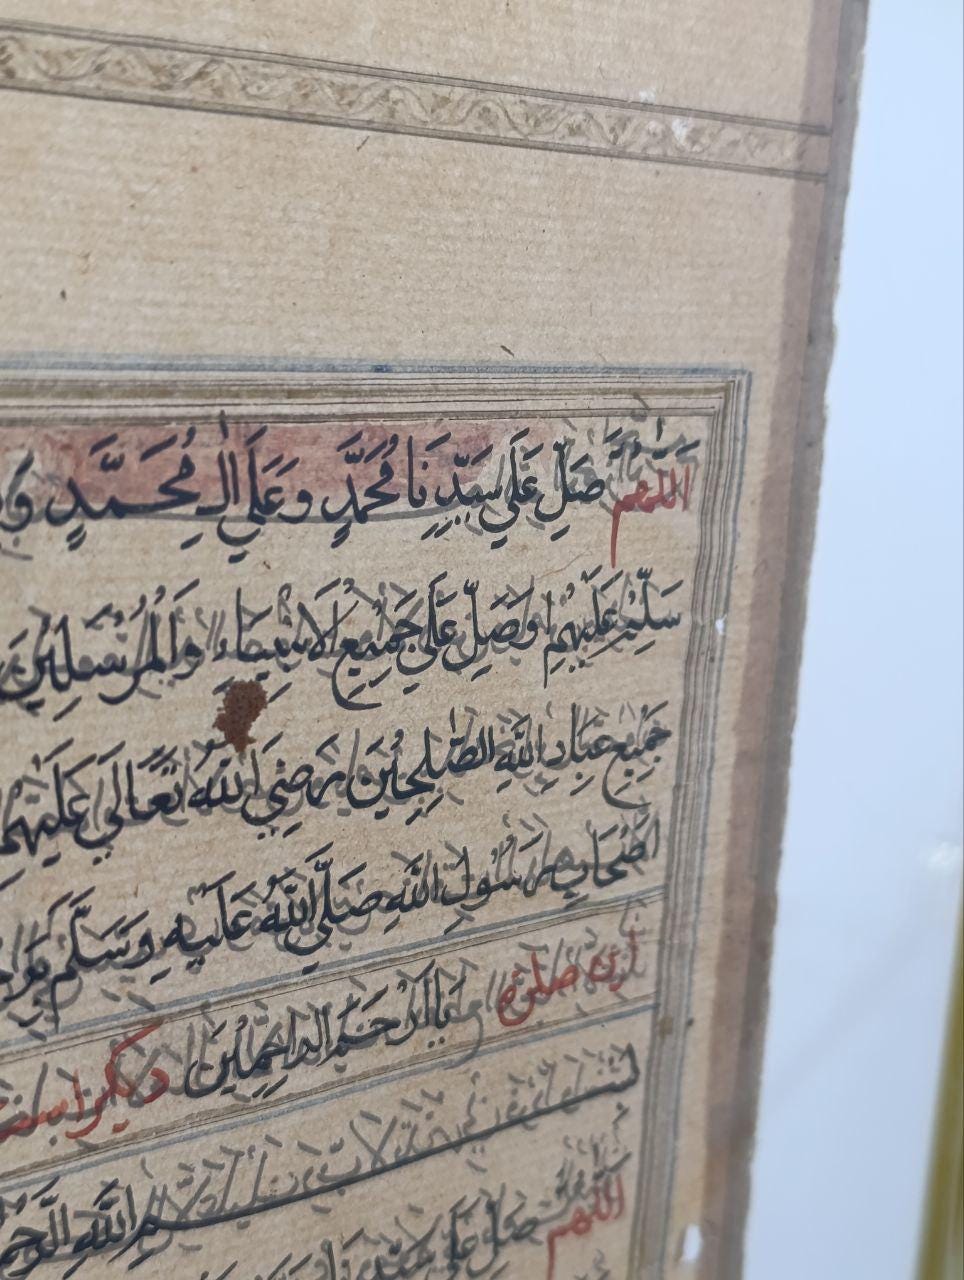 اللهم صَلِّ عَلَى سَيِّدِنَا مُحَمَّدٍ وَعَلَى اٰلِ مُحَمَّدٍ
سَلِّمْ عَلَيْهِمْ وَصَلِّ عَلَى جَمِيْعِ الْاَنْبِيَاءِ وَالْمُرْسَلِيْنَ
جَمِيْعِ عِبَادِ اللّٰهِ الصّٰلِحِيْنَ رَضِيَ اللّٰهُ تَعَالَى عَلَيْهِمْ
اَصْحَابِ رَسُوْلِ اللّٰهِ صَلَّى اللّٰهُ عَلَيْهِ وَسَلَّمَ
صلوة يَا اَرْحَمَ الرَّاحِمِيْنَ ديكر است
بِسْمِ اللّٰهِ الرَّحْمٰ
اللّٰهم صَلِّ عَلَى سَيِّدِنَا